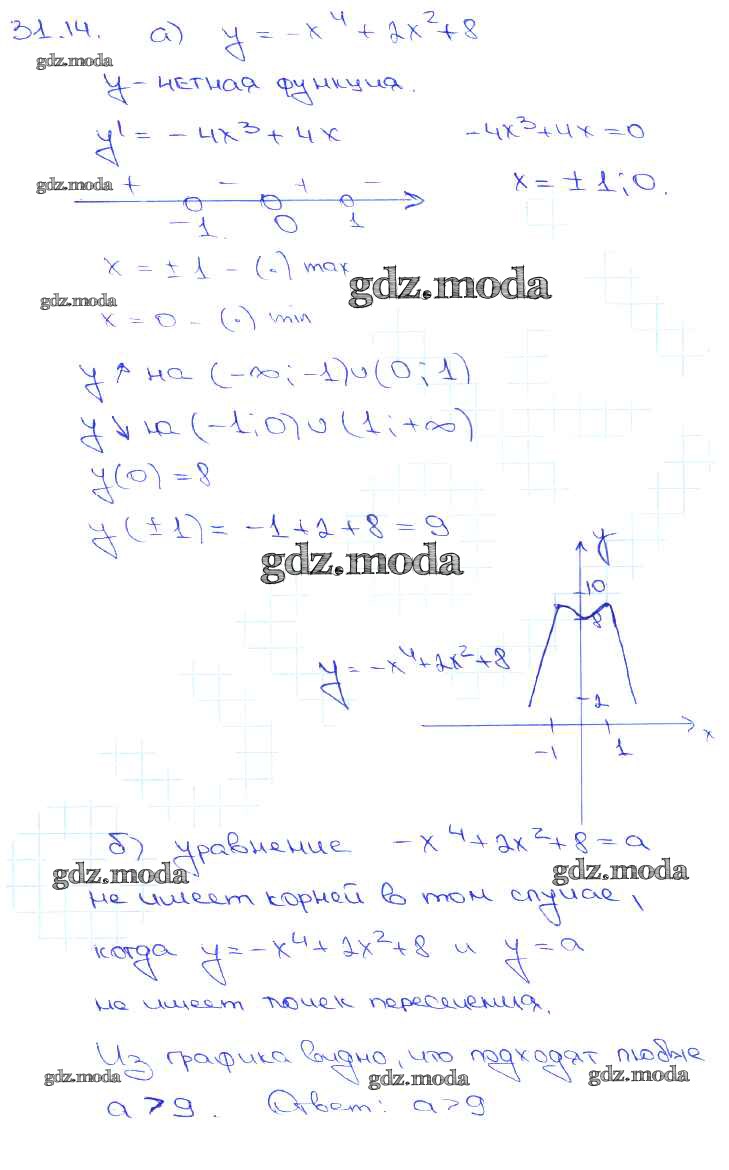 31.14. а) y = -x⁴ + 2x² + 8
gdz.moda
y - четная функция.
y' = -4x³ + 4x -4x³ + 4x = 0
gdz.moda + - + - x = ±1; 0.
-1 0 1
x = ±1 - (·) max
gdz.moda
gdz.moda
x = 0 - (·) min
y ↑ на (-∞; -1) ∪ (0; 1)
y ↓ на (-1; 0) ∪ (1; +∞)
y(0) = 8
y(±1) = -1 + 2 + 8 = 9
gdz.moda
y
10
8
y = -x⁴ + 2x² + 8
2
-1 1 x
б) уравнение -x⁴ + 2x² + 8 = a
gdz.moda gdz.moda
не имеет корней в том случае,
когда y = -x⁴ + 2x² + 8 и y = a
не имеет точек пересечения.
Из графика видно, что подходят любые
gdz.moda gdz.moda gdz.moda
a > 9. Ответ: a > 9